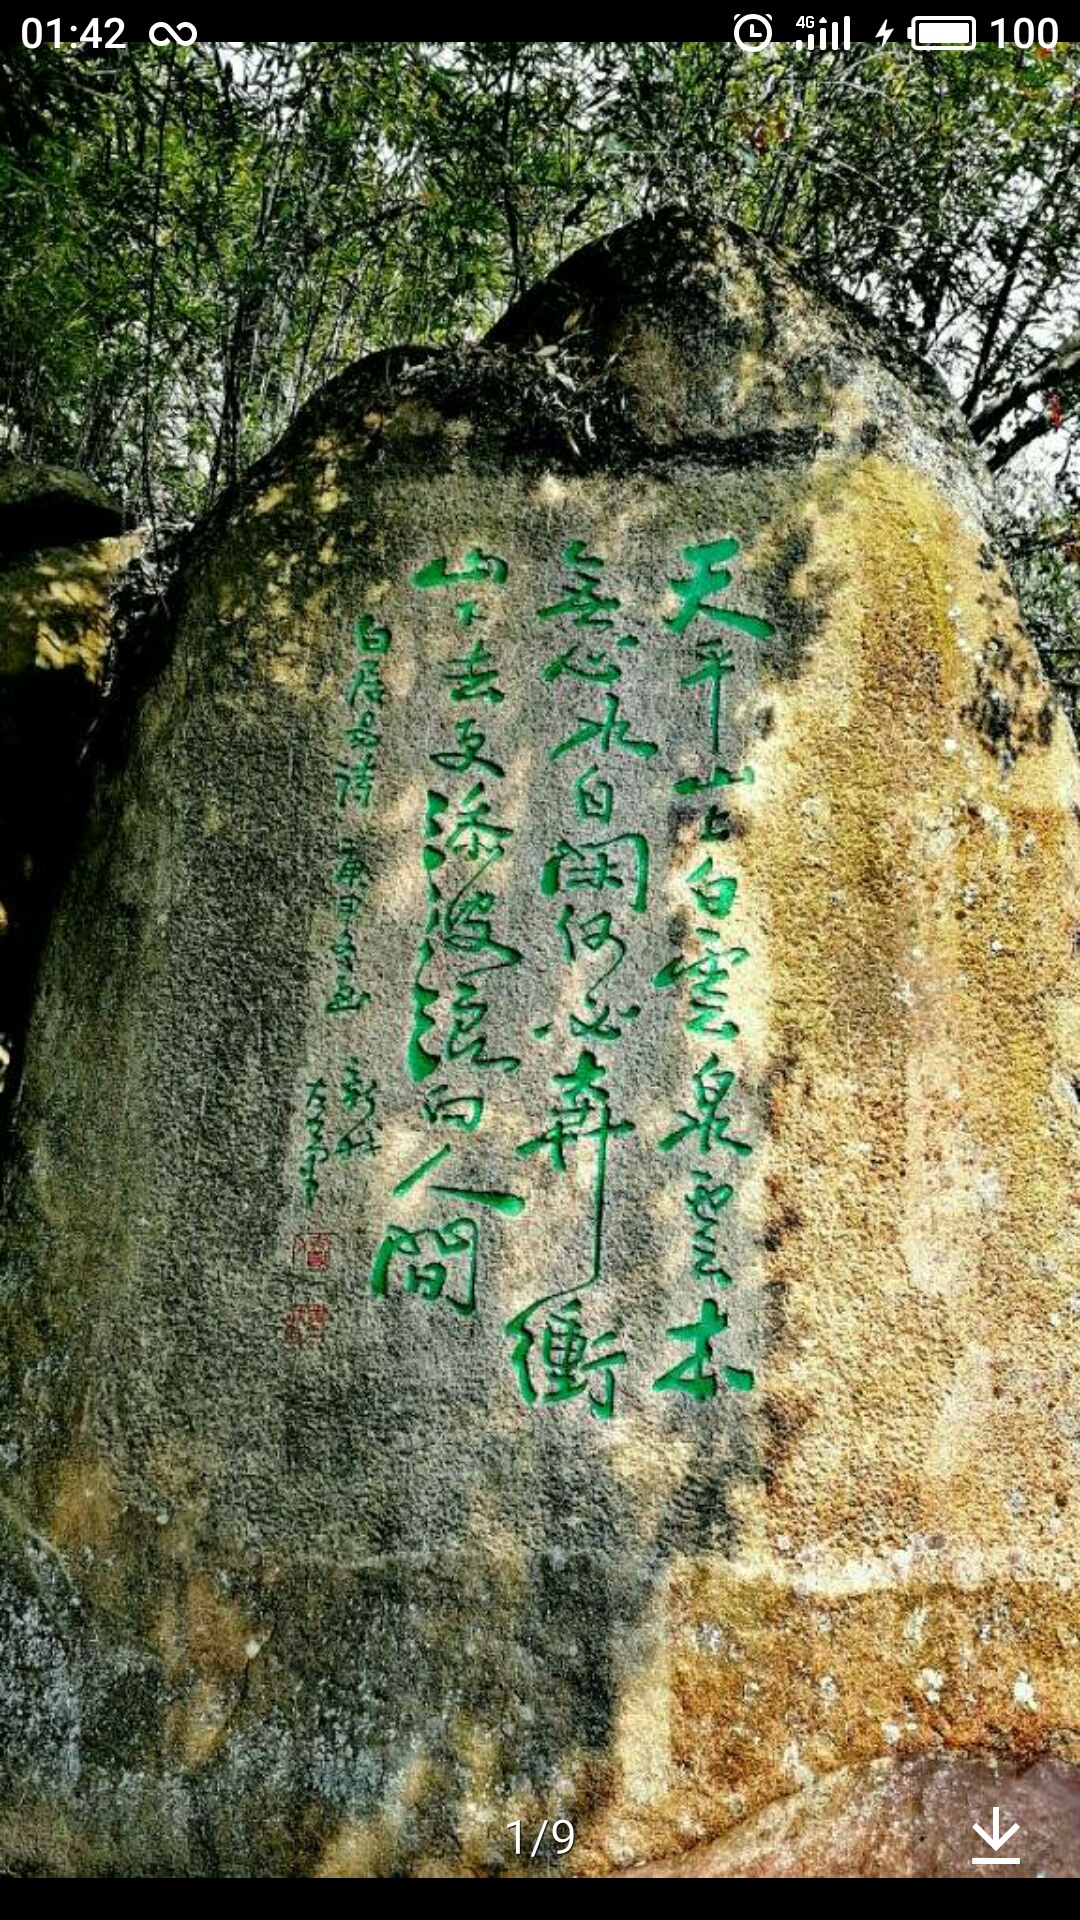 01:42 4G 100
天平山上白雲泉雲本
無心水自閑何必奔衝
山下去更添波浪向人間
白居易詩 庚申
1/9